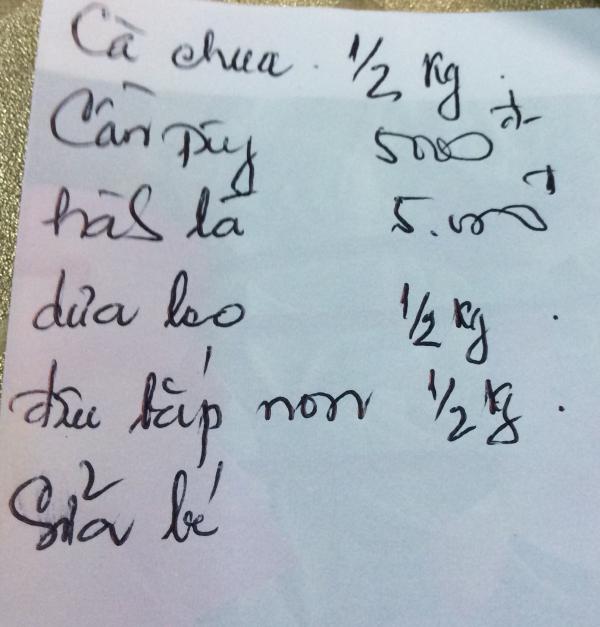 Cà chua. 1/2 kg.
Cần Tây 5000đ
hàh lá 5.000đ
dưa leo 1/2 kg.
đậu bắp non 1/2 kg.
Sữa bé